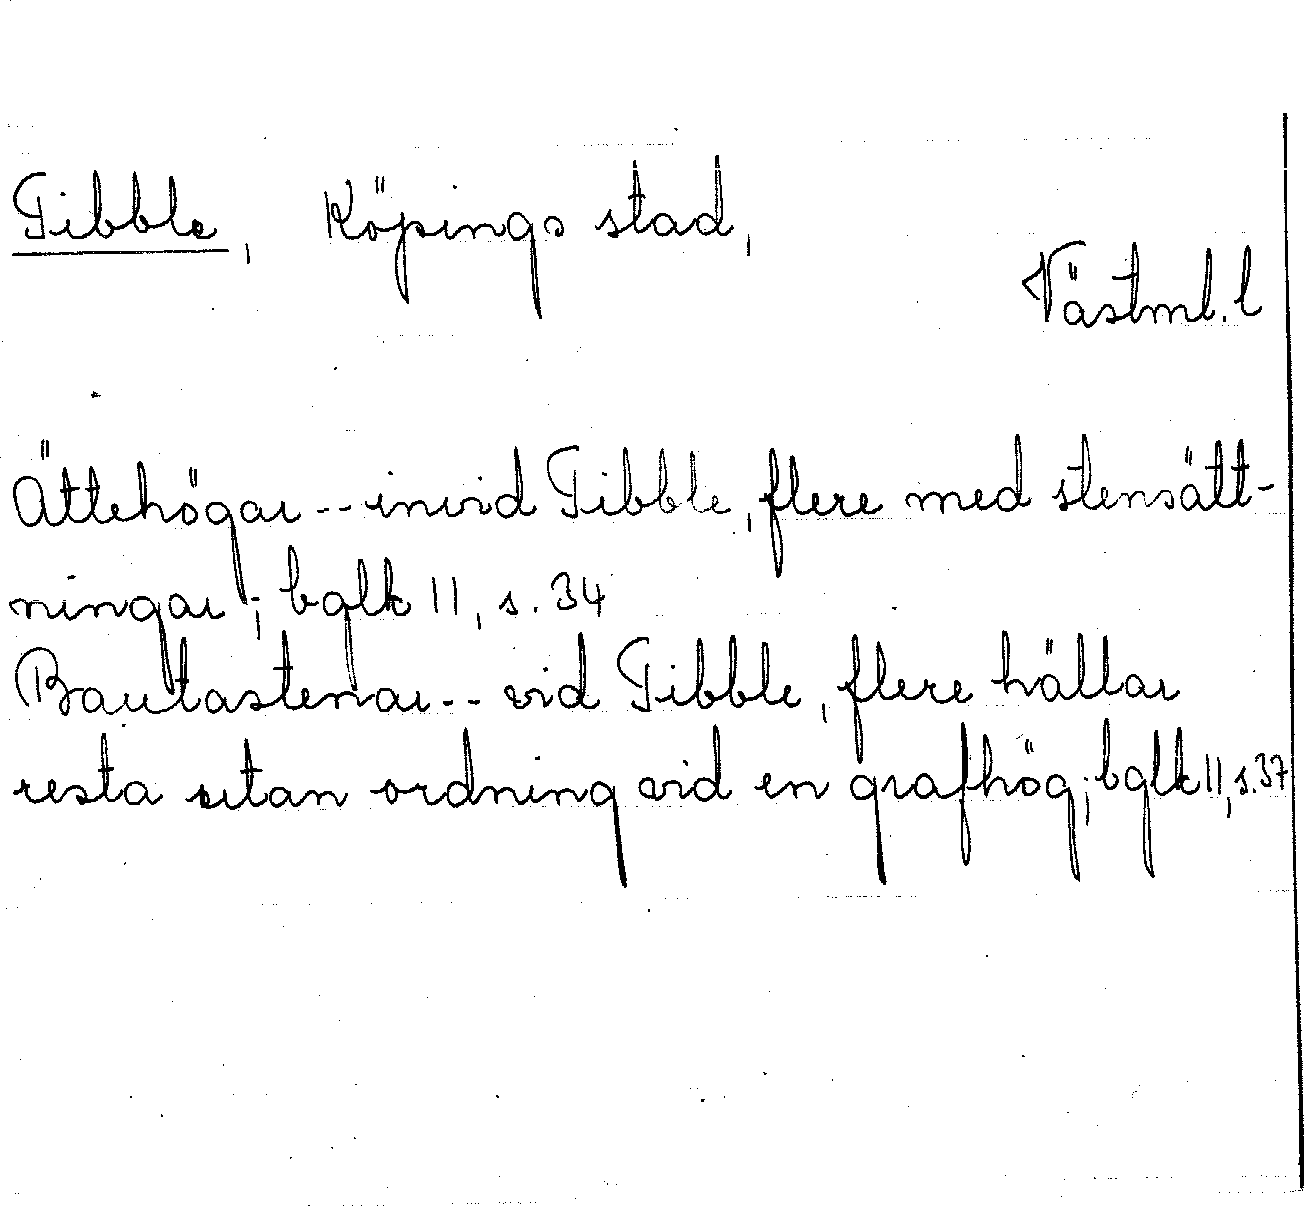 Tibble, Köpings stad,
Västml. l
Ättehögar -- invid Tibble, flere med stensätt-
ningar; bglk II, s. 34
Bautastenar -- vid Tibble, flere hällar
resta utan ordning vid en grafhög; bglk II, s. 37